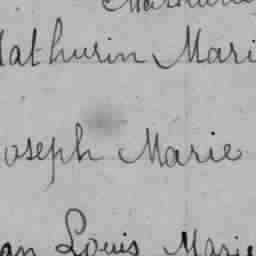 Mathurin Mari
Joseph Marie
ean Louis Marie